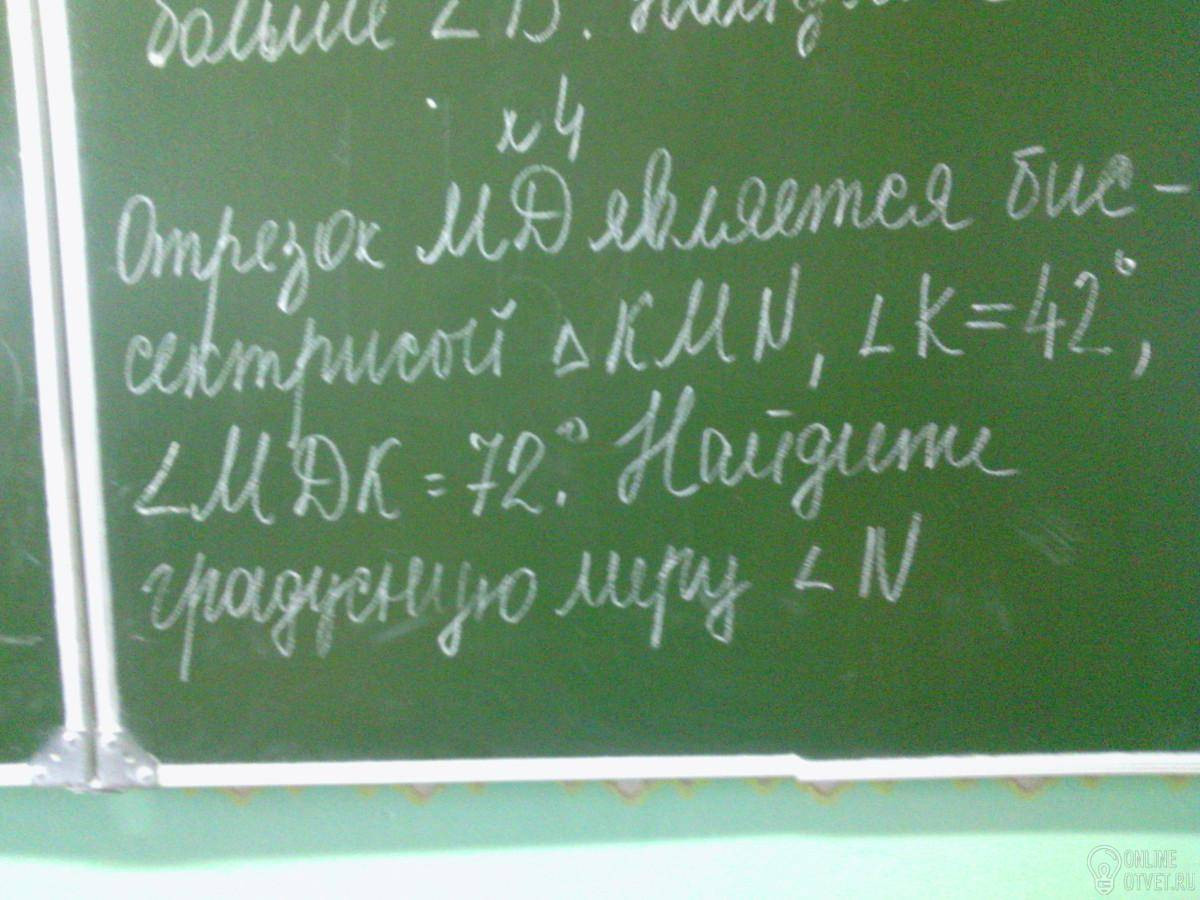 больше ∠В.
х 4
Отрезок МД является бис-
сектрисой △KMN, ∠K=42°,
∠МДК=72°. Найдите
градусную меру ∠N
ONLINE
OTVET.RU